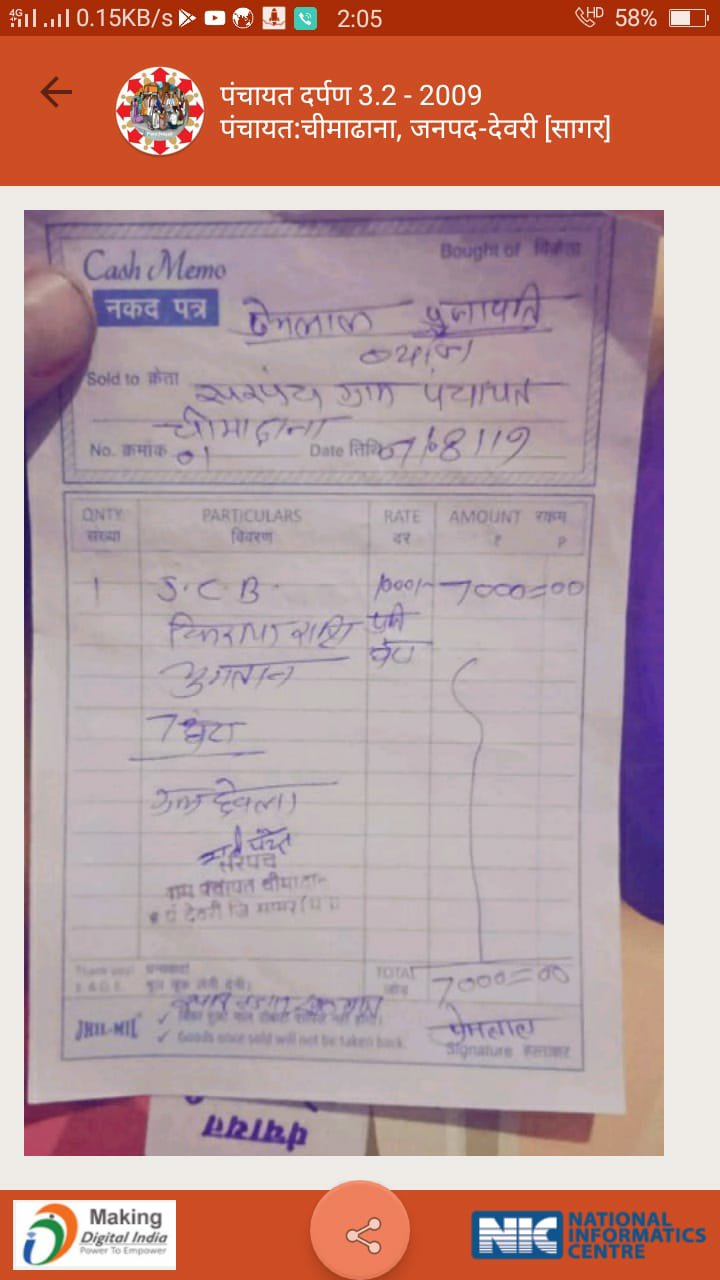 4G 0.15KB/s 2:05 HD 58%
पंचायत दर्पण 3.2 - 2009
पंचायत:चीमाढाना, जनपद-देवरी [सागर]
Cash Memo
Bought of विक्रेता
नकद पत्र
प्रेमलाल प्रजापति
Sold to क्रेता सरपंच ग्राम पंचायत
चीमाढाना
No. क्रमांक 01 Date तिथि 07/08/19
QNTY. PARTICULARS RATE AMOUNT रकम
संख्या विवरण दर ₹ P
1 S.C.B. 1000/- 7000=00
किराया राशि प्रति
भुगतान घंटा
7 घंटा
सरपंच
ग्राम पंचायत चीमाढाना
TOTAL 7000=00
जोड़
भूल चूक लेनी देनी।
JHIL-MIL
✓ Goods once sold will not be taken back.
प्रेमलाल
Signature हस्ताक्षर
पंचायत
Making
Digital India
Power To Empower
NIC NATIONAL
INFORMATICS
CENTRE